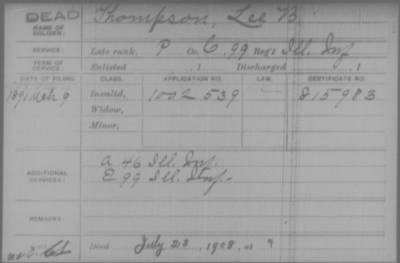 DEAD
NAME OF SOLDIER: Thompson, Lee B.
SERVICE: Late rank, P Co. C, 99 Reg't Ill. Inf
TERM OF SERVICE: Enlisted , 1 Discharged , 1
DATE OF FILING. CLASS. APPLICATION NO. LAW. CERTIFICATE NO.
1891 Mch 9 Invalid, 1002 539 815983
Widow,
Minor,
ADDITIONAL SERVICES: A 46 Ill. Inf.
E 99 Ill. Inf.
REMARKS:
Died July 23, 1908, at